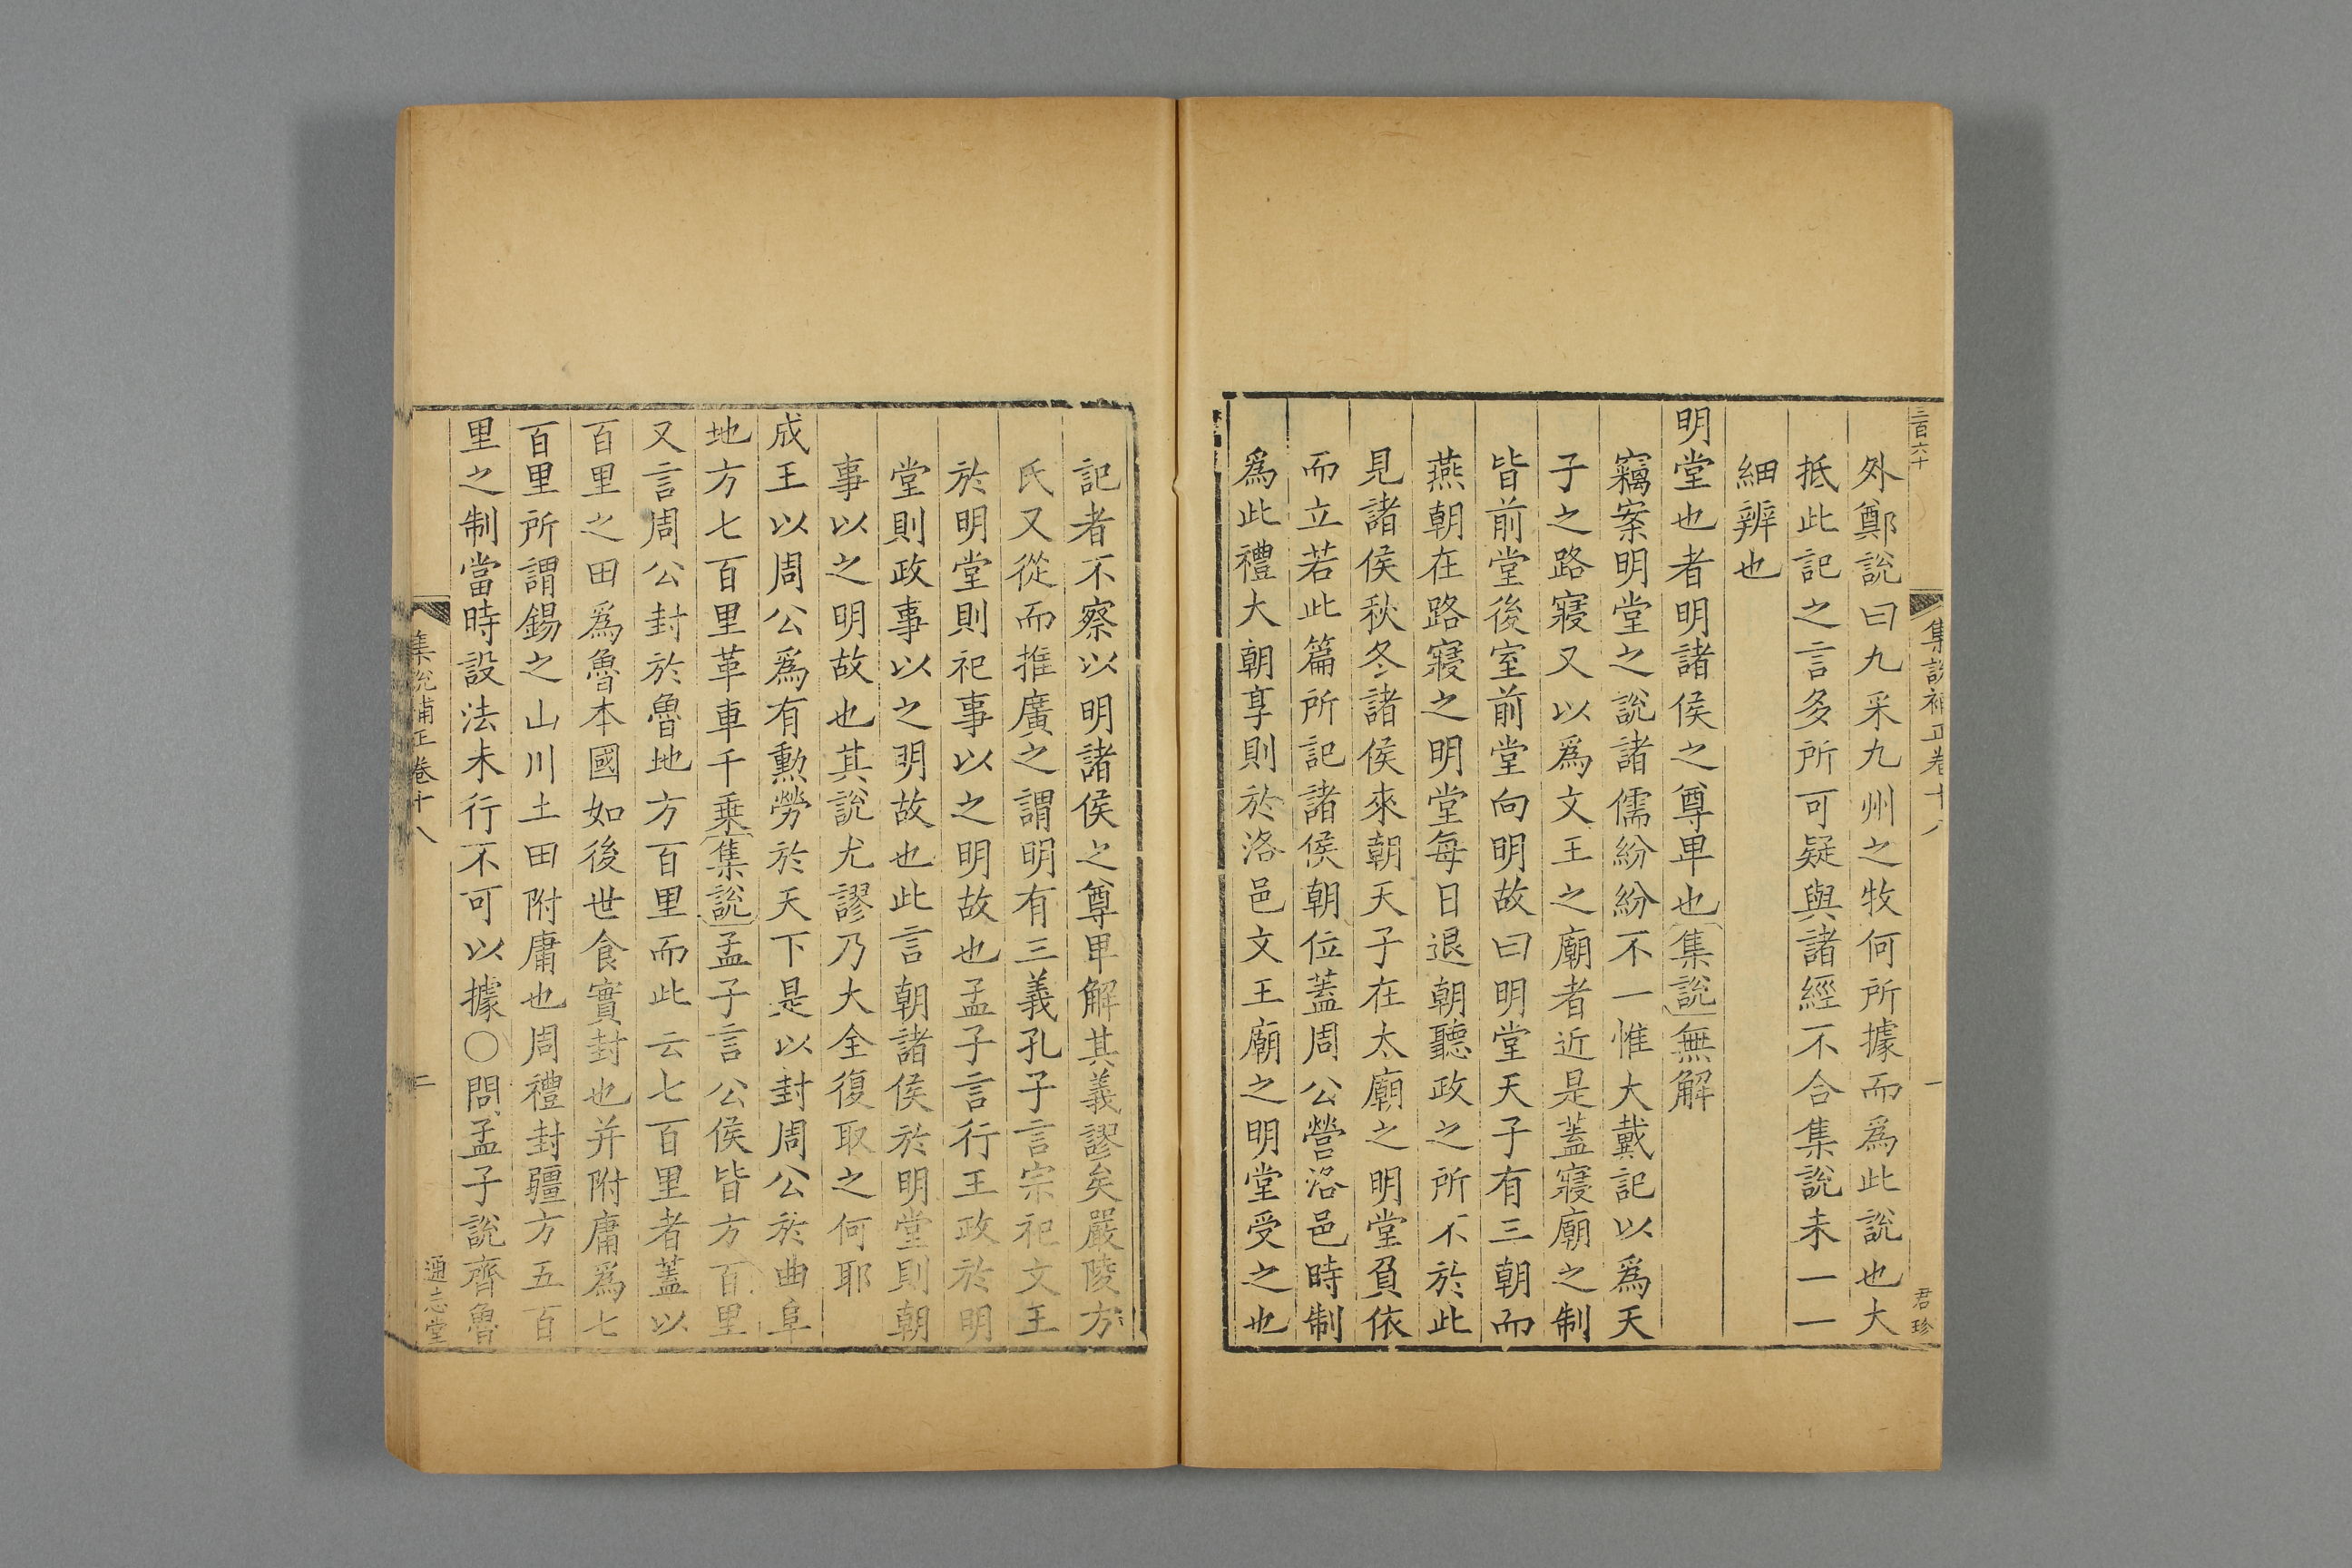 三百六十
集說補正卷十八
一
君珍
外鄭說曰九采九州之牧何所據而爲此說也大
抵此記之言多所可疑與諸經不合集說未一一
細辨也
明堂也者明諸侯之尊卑也集說無解
竊案明堂之說諸儒紛紛不一惟大戴記以爲天
子之路寢又以爲文王之廟者近是蓋寢廟之制
皆前堂後室前堂向明故曰明堂天子有三朝而
燕朝在路寢之明堂每日退朝聽政之所不於此
見諸侯秋冬諸侯來朝天子在太廟之明堂負依
而立若此篇所記諸侯朝位蓋周公營洛邑時制
爲此禮大朝享則於洛邑文王廟之明堂受之也
記者不察以明諸侯之尊卑解其義謬矣嚴陵方
氏又從而推廣之謂明有三義孔子言宗祀文王
於明堂則祀事以之明故也孟子言行王政於明
堂則政事以之明故也此言朝諸侯於明堂則朝
事以之明故也其說尤謬乃大全復取之何耶
成王以周公爲有勳勞於天下是以封周公於曲阜
地方七百里革車千乗集說孟子言公侯皆方百里
又言周公封於魯地方百里而此云七百里者蓋以
百里之田爲魯本國如後世食實封也并附庸爲七
百里所謂錫之山川土田附庸也周禮封疆方五百
里之制當時設法未行不可以據○問孟子說齊魯
集說補正卷十八
二
通志堂